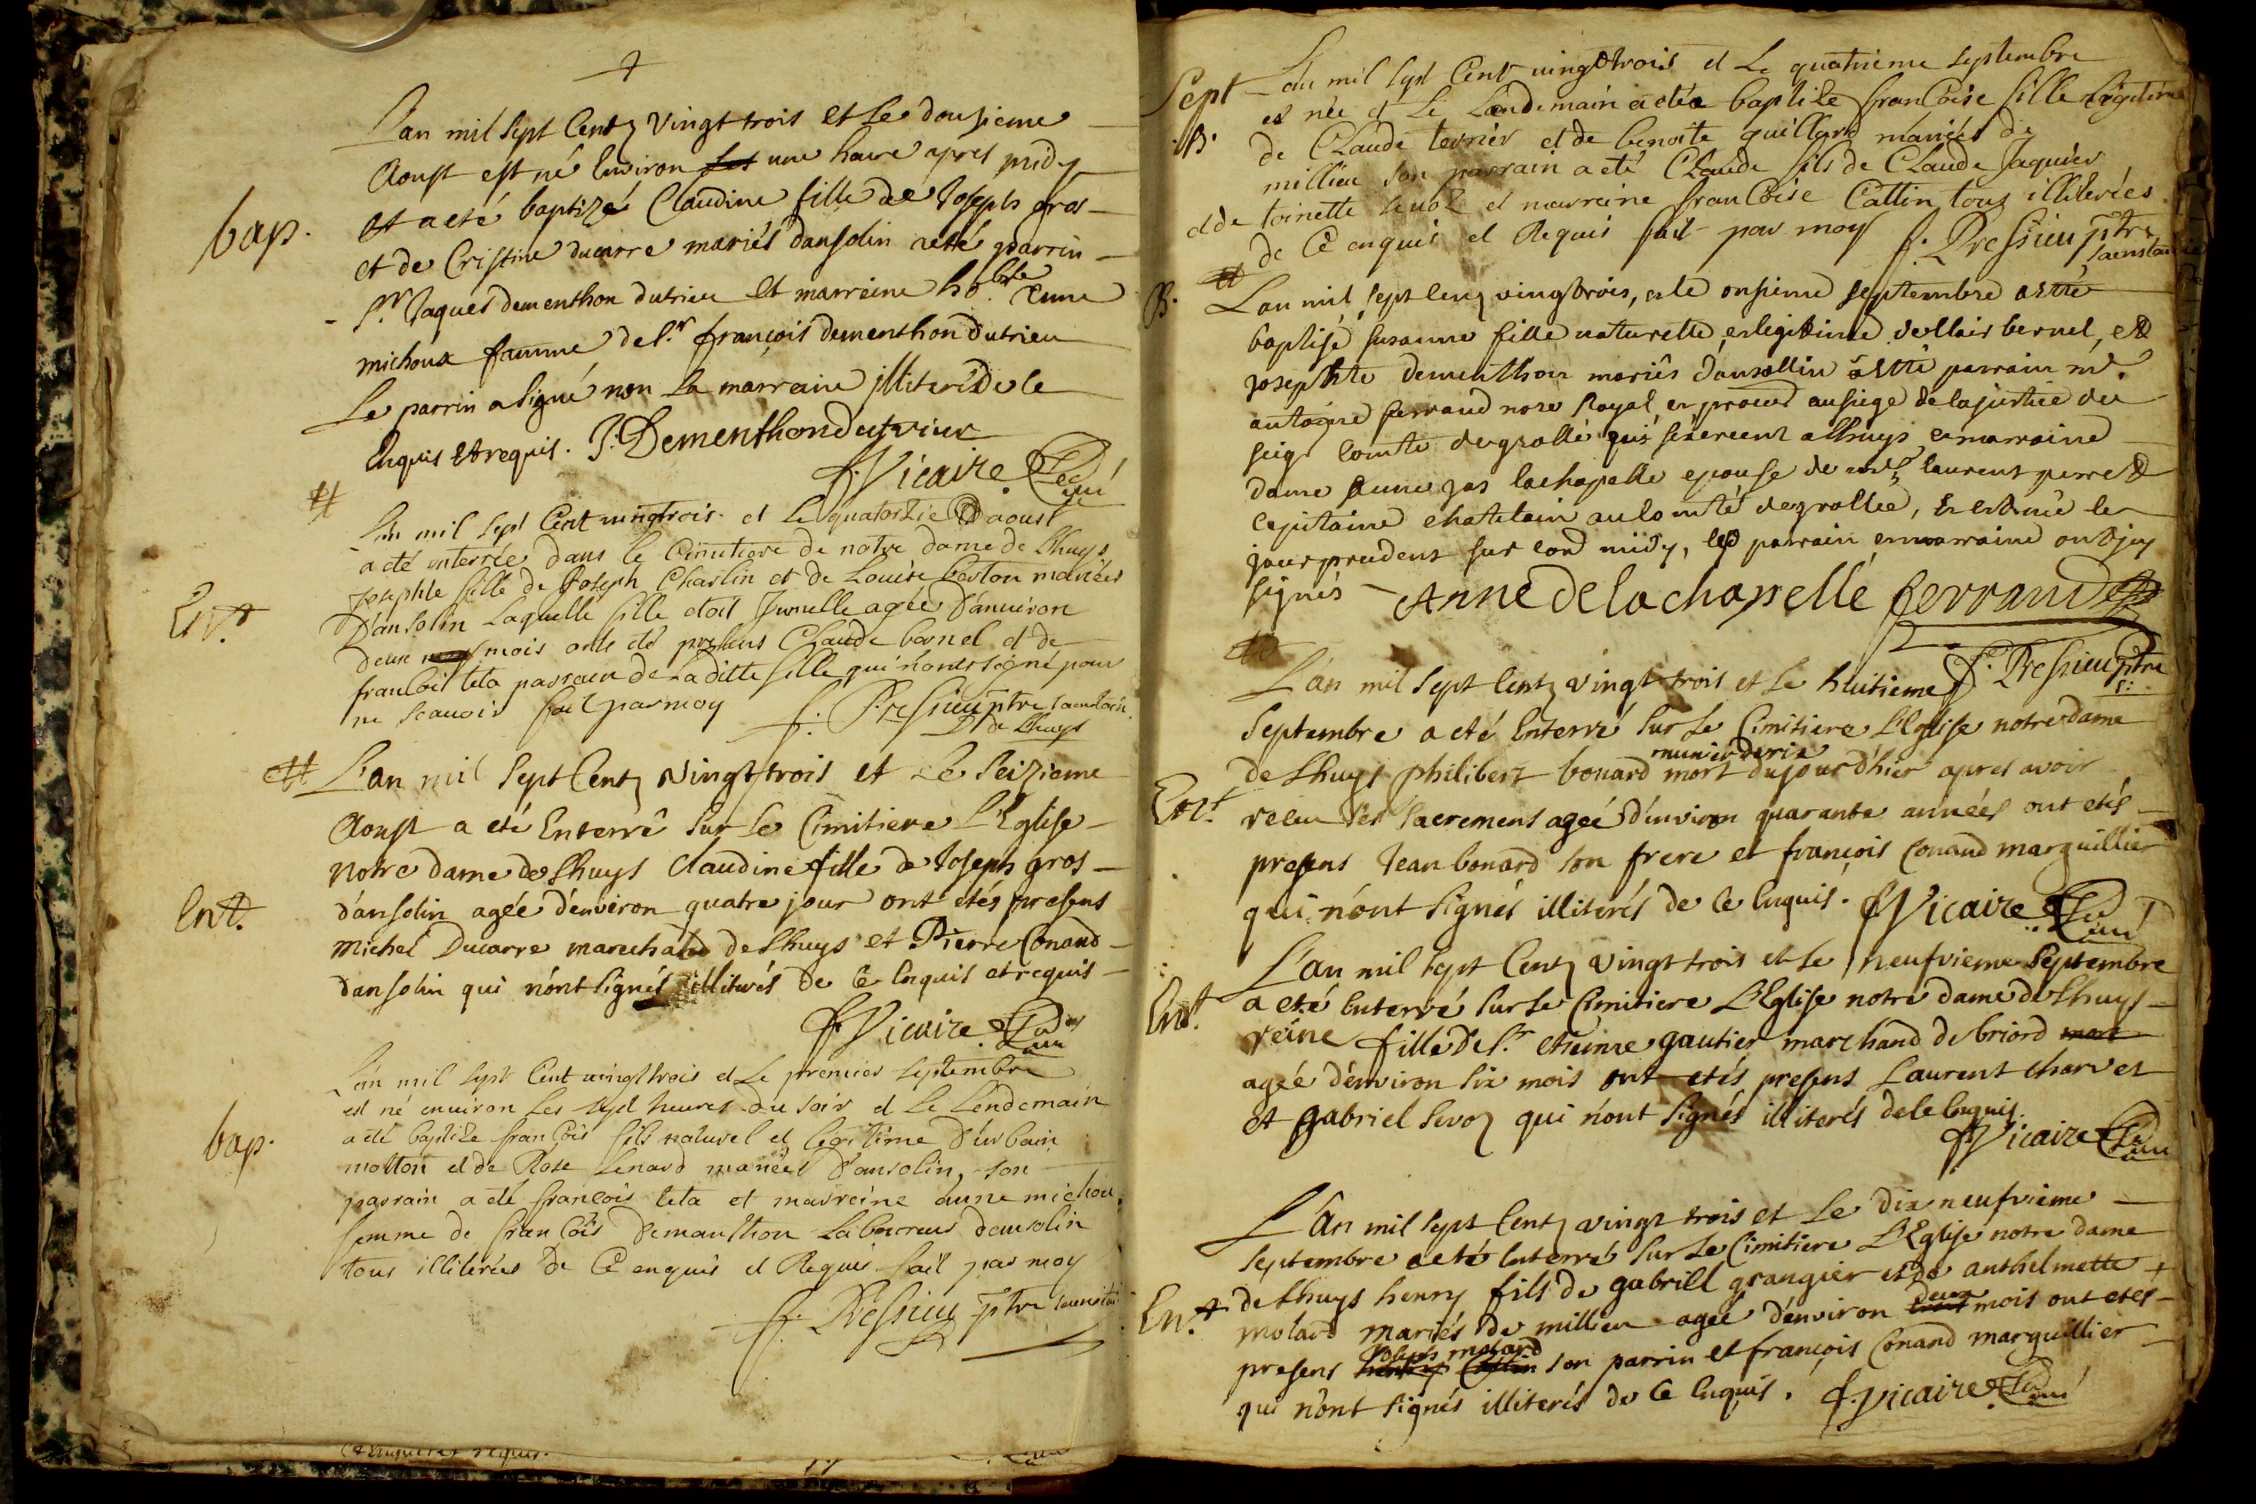 L'an mil sept Cent Vingt trois et Le dousieme
Aoust est né Environ une heure apres midy
bap.
et a eté baptizé Claudine fille de Joseph gros
et de Cristine ducarre mariés dansolin a etté parrin
Sr. Jaques dementhon dutrieu et marreine ho.ble Anne
michoux famme de Sr. françois dementhon dutrieu
Le parrin a signé non La marreine illiteré de ce
Enquis et requis. J: Dementhondutrieur
f. Vicaire Curé
L'an mil sept Cent vingttrois et Le quatorzie d'aoust
a été enterrée dans le Cimitiere de notre dame de Lhuys
josephte fille de Joseph Charlin et de Louise berton mariées
Ent.
D'ansolin Laquelle fille etoit Jumelle agée d'anuiron
deux mois onts eté presens Claude bornel et de
francois teta parrain de La ditte fille qui n'ont signé pour
ne scauoir fait par moy
f. Pressieu ptre
de Lhuys
L'an mil sept Cent Vingt trois et Le Seizieme
Aoust a eté Enterré sur Le Cimitiere L'Eglise
Notre dame de Lhuys Claudine fille de Joseph gros
Ent.
d'ansolin agée d'environ quatre jour ont etés presens
Michel Ducarre marechald de Lhuys et Pierre Conand
dansolin qui n'ont signés illiterés de Ce Enquis et requis
f. Vicaire Curé
L'an mil sept Cent vingttrois et Le premier septembre
est né enuiron Les sept heures du soir et Le Lendemain
bap.
a été baptize françois fils naturel et legitime d'urbain
molton et de Rose Senard mariées d'ansolin, son
parrain a eté françois teta et marreine anne michou
femme de François demanthon Laboureur dansolin
tous illiterées de Ce enquis et Requis fait par moy
f. Pressieu ptre
Sept
L'an mil sept Cent vingttrois et Le quatrieme septembre
es née et Le Lendemain a etée baptize francoise fille Legitime
B.
de Claude terrier et de benoite guillard mariées de
millieu son parrain a eté Claude fils de Claude Jaquier
et de toinette et marreine francoise Cattin tous illiterées
de Ce enquis et Requis fait par moy f. Pressieu ptre
B.
L'an mil sept cent vingtrois, et le onsieme septembre a etté
baptisé susanne fille naturelle, et legitime de bernel, et
josephte dementhon mariés dansollin a etté parrain me.
antoine ferrand nore Royal, et procur au siege de la justice du
seigr comte de grollé qui s'exercent a lhuys et marraine
dame anne de lachapelle epouse de laurent perret
capitaine chatelain au comté de grollée, Et est née le
jour precedent sur les midy, led parrain et marraine ont
signés
Anne de la chappelle ferrand
f. Pressieu ptre
L'an mil sept Cent Vingt trois et Le huitieme
septembre a eté Enterré sur Le Cimitiere L'Eglise notre dame
de Lhuys philibert bonard mort du jour d'hier apres avoir
Ent.
receu Ses Sacremens ageé d'environ quarante années ont etés
presens Jean bonard son frere et françois Conand marguillier
qui n'ont signés illiterés de Ce Enquis. f. Vicaire Curé
L'an mil sept Cent Vingt trois et Le neufvieme Septembre
Ent.
a eté Enterré sur Le Cimitiere L'Eglise notre dame de Lhuys
reine fille de Sr. etienne gautier marchand de briord
ageé d'environ six mois ont etés presens Laurent charvet
et gabriel Sevoz qui n'ont signés illiterés de Ce Enquis.
f. Vicaire Curé
L'an mil sept Cent Vingt trois et Le dix neufvieme
septembre a eté Enterré sur Le Cimitiere L'Eglise notre dame
Ent.
de Lhuys henry fils de gabriel grangier et de anthelmette
molard mariés de millieu ageé d'environ deux mois ont etés
presens Joseph molard son parrin et françois Conand marguillier
qui n'ont signés illiterés de Ce Enquis. f. Vicaire Curé